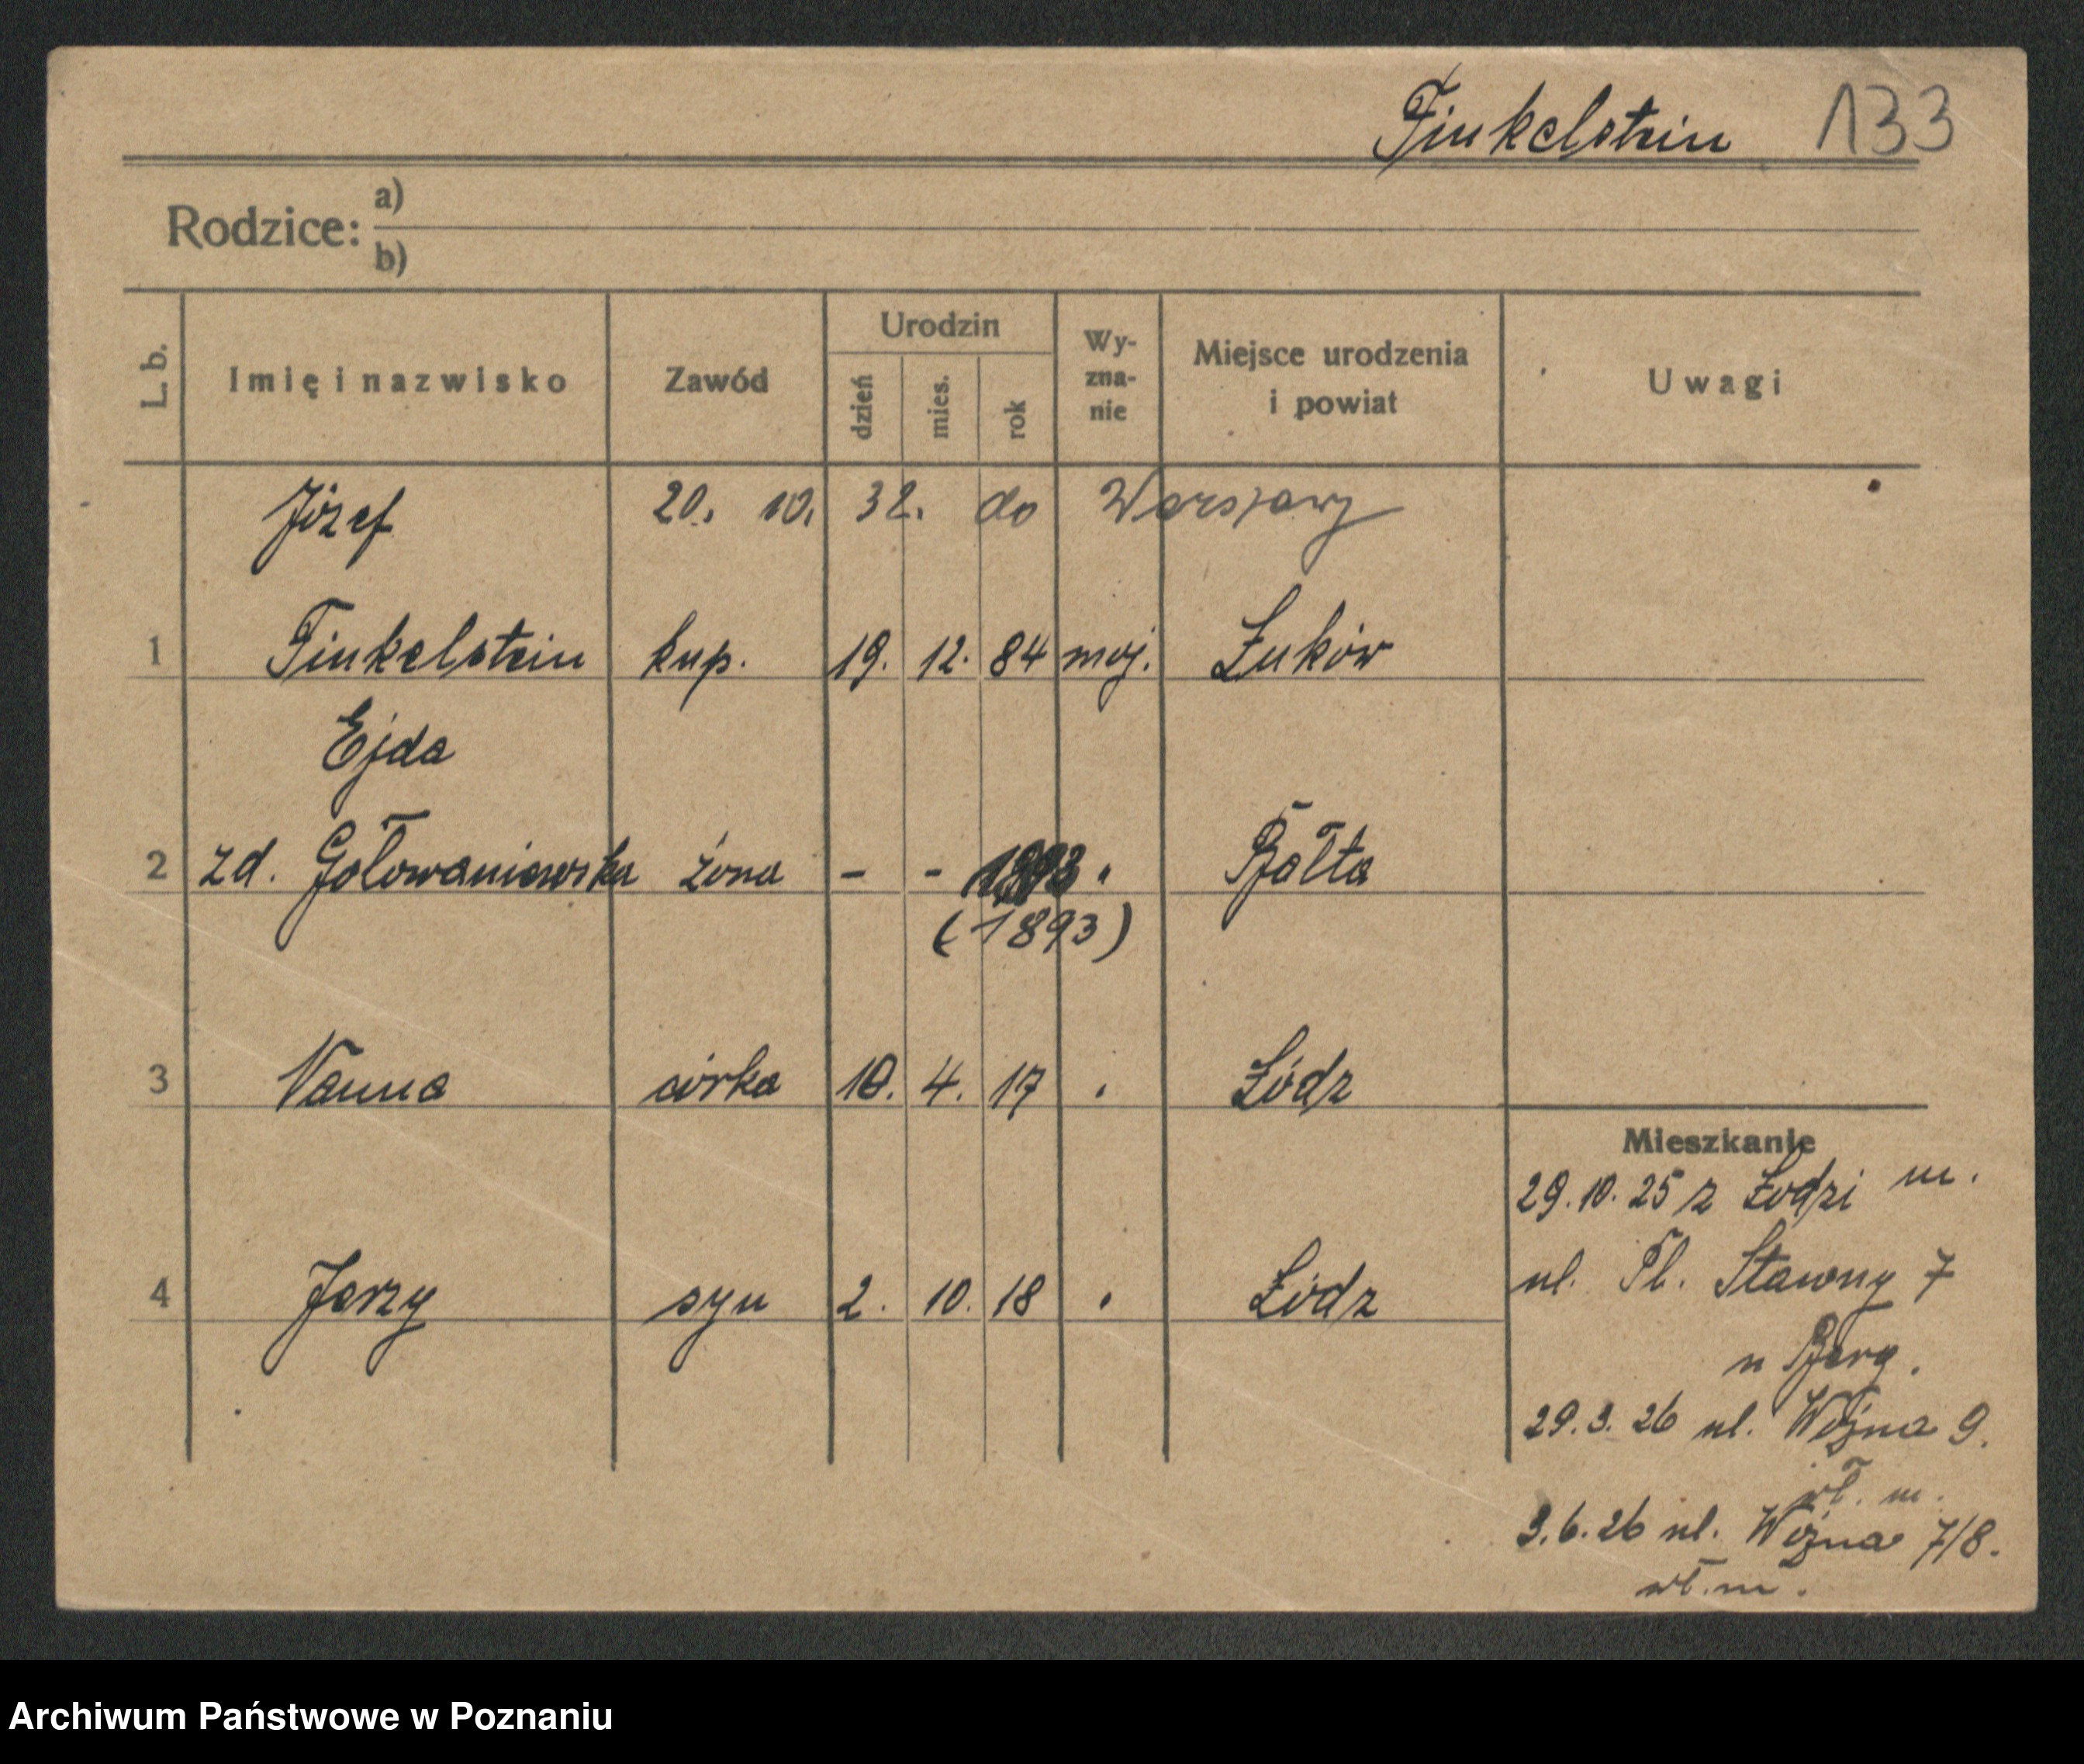 Finkelstein 133
Rodzice: a)
b)
L. b. Imię i nazwisko Zawód Urodzin dzień mies. rok Wy-zna-nie Miejsce urodzenia i powiat Uwagi
Józef 20. 10. 32. do Warszawy
1 Finkelstein kup. 19. 12. 84 moj. Łuków
Ejda
2 zd. Gołowaniewska żona - - 1893 " Bałta
(1893)
3 Nanna córka 10. 4. 17 " Łódz
4 Jerzy syn 2. 10. 18 " Łódz
Mieszkanie
29.10.25 z Łodzi m.
ul. Pl. Stawny 7
u Berg.
29.3.26 ul. Woźna 9.
wł. m.
3.6.26 ul. Woźna 7/8.
wł. m.
Archiwum Państwowe w Poznaniu